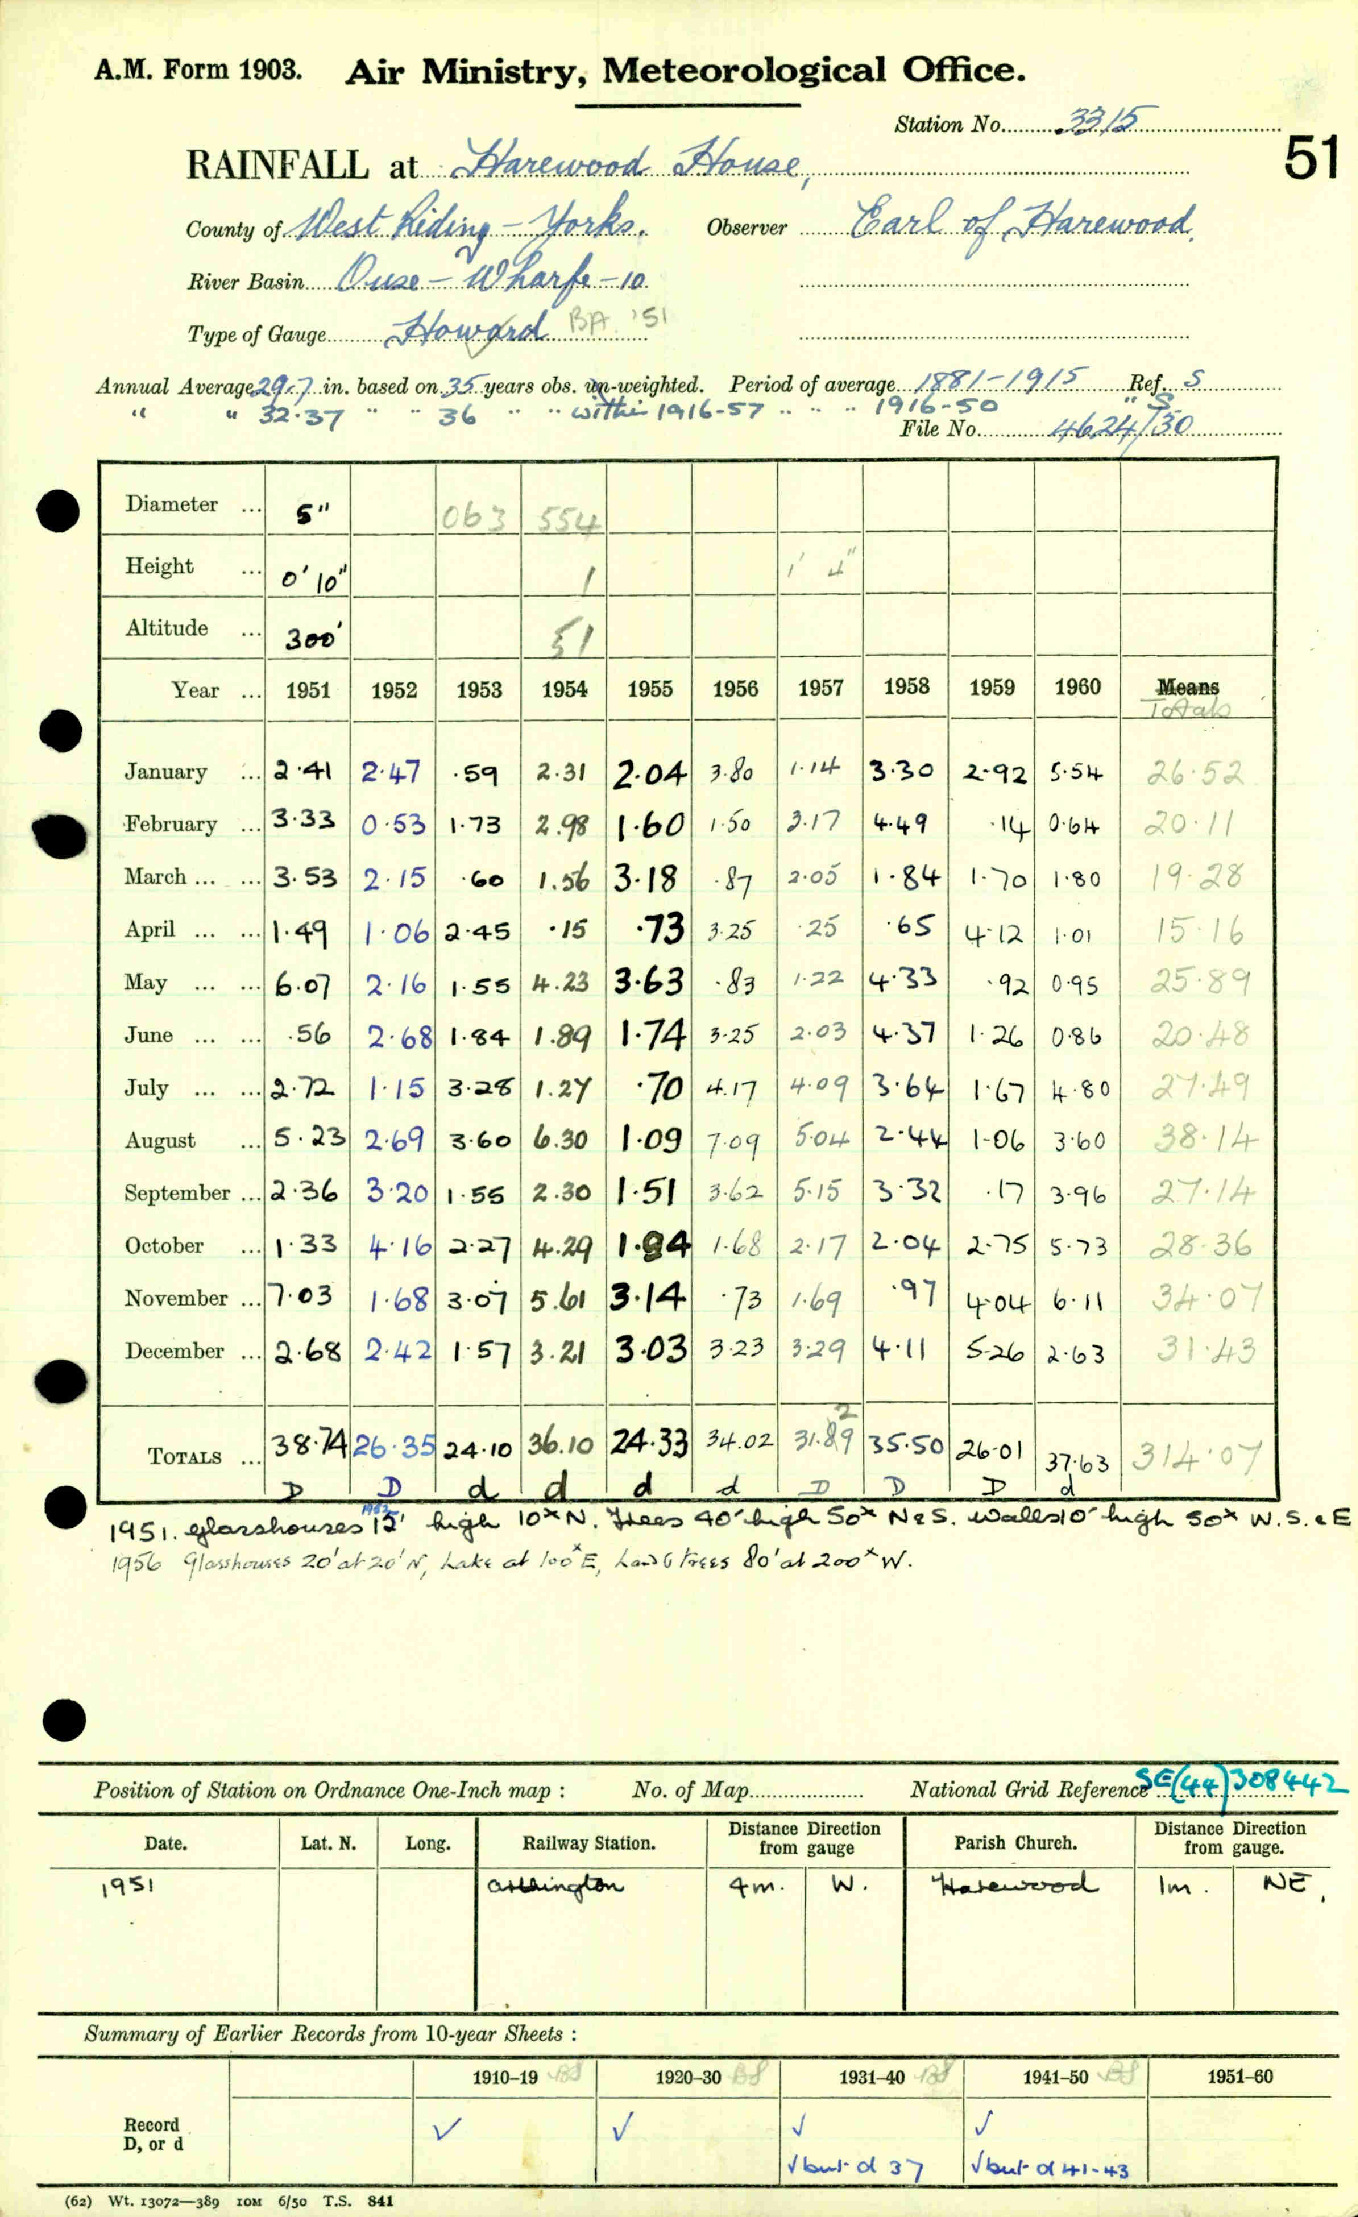 A.M. Form 1903. Air Ministry, Meteorological Office.
Station No. 3315
51
RAINFALL at Harewood House,
County of West Riding - Yorks. Observer Earl of Harewood.
River Basin Ouse - Wharfe - 10
Type of Gauge Howard BA '51
Annual Average 29.7 in. based on 35 years obs. un-weighted. Period of average 1881-1915 Ref. S
" " 32.37 " " 36 " " within 1916-57 " " " 1916-50 " S.
File No. 4624/50
Diameter ... 5" 063 554
Height ... 0' 10" 1 1' 4"
Altitude ... 300' 51
Year ... 1951 1952 1953 1954 1955 1956 1957 1958 1959 1960 Means
Totals
January ... 2.41 2.47 .59 2.31 2.04 3.80 1.14 3.30 2.92 5.54 26.52
February ... 3.33 0.53 1.73 2.98 1.60 1.50 3.17 4.49 .14 0.64 20.11
March ... ... 3.53 2.15 .60 1.56 3.18 .87 2.05 1.84 1.70 1.80 19.28
April ... ... 1.49 1.06 2.45 .15 .73 3.25 .25 .65 4.12 1.01 15.16
May ... ... 6.07 2.16 1.55 4.23 3.63 .83 1.22 4.33 .92 0.95 25.89
June ... ... .56 2.68 1.84 1.89 1.74 3.25 2.03 4.37 1.26 0.86 20.48
July ... ... 2.72 1.15 3.28 1.27 .70 4.17 4.09 3.64 1.67 4.80 27.49
August ... 5.23 2.69 3.60 6.30 1.09 7.09 5.04 2.44 1.06 3.60 38.14
September ... 2.36 3.20 1.55 2.30 1.51 3.62 5.15 3.32 .17 3.96 27.14
October ... 1.33 4.16 2.27 4.29 1.94 1.68 2.17 2.04 2.75 5.73 28.36
November ... 7.03 1.68 3.07 5.61 3.14 .73 1.69 .97 4.04 6.11 34.07
December ... 2.68 2.42 1.57 3.21 3.03 3.23 3.29 4.11 5.26 2.63 31.43
2
TOTALS ... 38.74 26.35 24.10 36.10 24.33 34.02 31.89 35.50 26.01 37.63 314.07
D D d d d d D D D d
1951. glasshouses 12' high 10x N. Trees 40' high 50x N & S. Walls 10' high 50x W. S. & E
1956 Glasshouses 20' at 20' N, Lake at 100x E, trees 80' at 200x W.
Position of Station on Ordnance One-Inch map : No. of Map National Grid Reference SE(44)308442
Date. Lat. N. Long. Railway Station. Distance from Direction gauge Parish Church. Distance from Direction gauge.
1951 Arthington 4m. W. Harewood 1m. NE.
Summary of Earlier Records from 10-year Sheets :
1910-19 1920-30 1931-40 1941-50 1951-60
Record
D, or d ✓ ✓ ✓ ✓
✓ but d 37 ✓ but d 41-43
(62) Wt. 13072—389 10M 6/50 T.S. 841